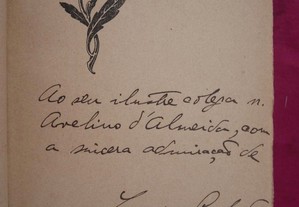 Ao seu ilustre colega n.
Avelino d'Almeida, com
a sincera admiração de